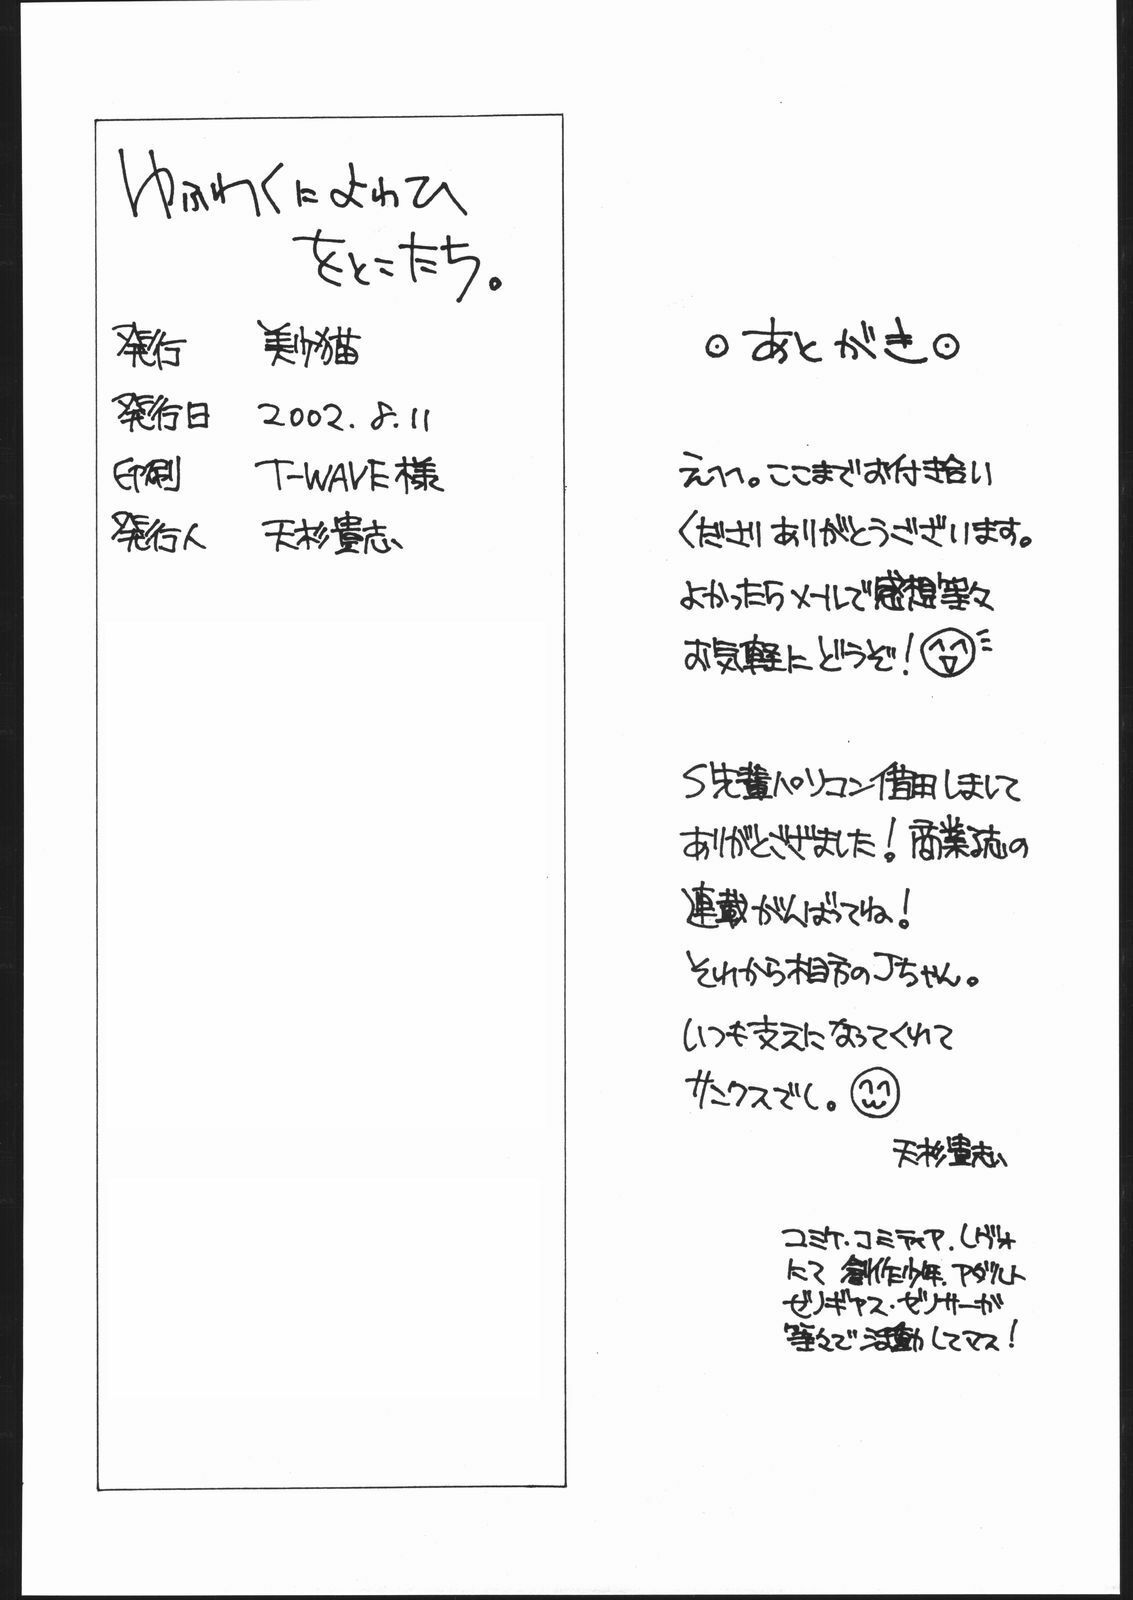 ゆふわくによわひ
をとこたち。
発行 美少猫
発行日 2002.8.11
印刷 T-WAVE様
発行人 天杉貴志
⊙あとがき⊙
えへへ。ここまでお付き合い
くださりありがとうございます。
よかったらメールで感想等々
お気軽にどうぞ!
S先輩パソコン借用しまして
ありがとござました!商業誌の
連載がんばってね!
それから相方のJちゃん。
いつも支えになってくれて
サンクスでし。
天杉貴志
コミケ・コミティア・レヴォ
にて 創作少年、アダルト
ゼノギアス・ゼノサーガ
等々で活動してマス!